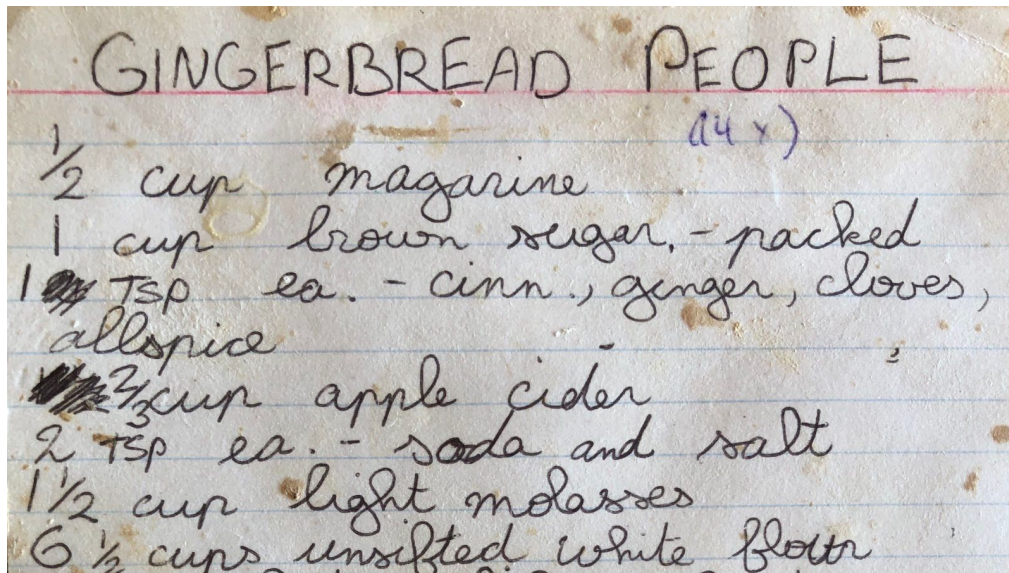 GINGERBREAD PEOPLE
(14 x)
1/2 cup magarine
1 cup brown sugar, - packed
1 Tsp ea. - cinn., ginger, cloves,
allspice
2/3 cup apple cider
2 Tsp ea. - soda and salt
1 1/2 cup light molasses
6 1/2 cups unsifted white flour